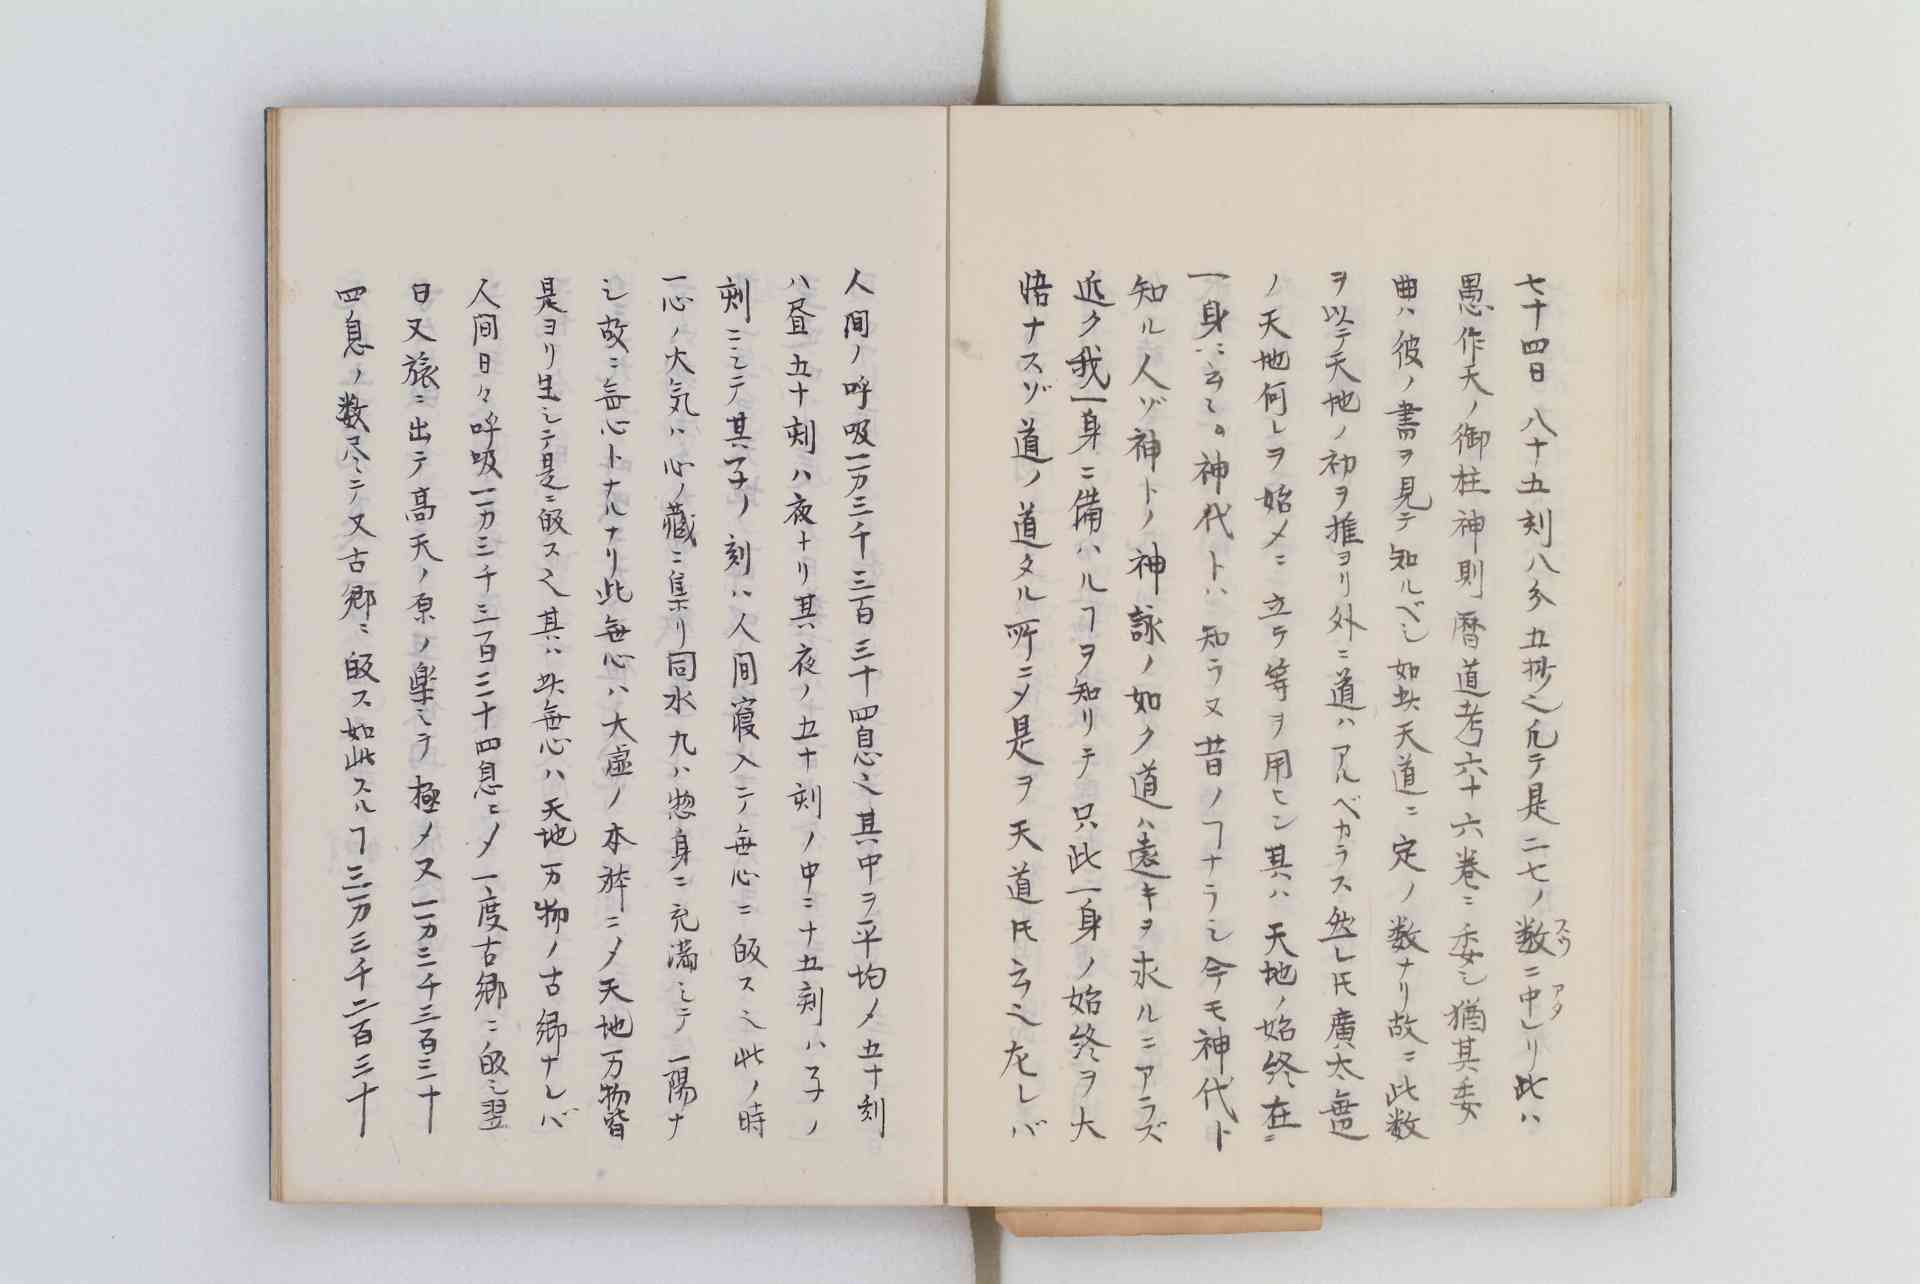 七十四日八十五刻八分五抄也凢テ是二七ノ数ニ中レリ此ハ
スウ
アタ
愚作天ノ御柱神則暦道考六十六巻ニ委シ猶其委
曲ハ彼ノ書ヲ見テ知ルベシ如此天道ニ定ノ数ナリ故ニ此数
ヲ以テ天地ノ初ヲ推ヨリ外ニ道ハアルベカラス然レ㪽廣太無邉
ノ天地何レヲ始メニ立テ等ヲ用ヒン其ハ天地ノ始終在ニ
一身ニ云々神代トハ知ラヌ昔ノヿナラシ今モ神代ト
知ル人ゾ神ト丿神詠ノ如ク道ハ遠キヲ求ルニアラズ
近ク我一身ニ備ハルヿヲ知リテ只此一身ノ始終ヲ大
悟ナスゾ道ノ道タル所ニメ是ヲ天道𪜈云也左レバ
人間ノ呼吸一万三千三百三十四息也其中ヲ平均メ五十刻
ハ昼五十刻ハ夜ナリ其夜ノ五十刻ノ中ニ十五刻ハ子ノ
刻ニシテ其子ノ刻ハ人間寝入テ無心ニ皈ス也此ノ時
一心ノ大気ハ心ノ藏ニ集リ同水九ハ惣身ニ充満シテ一陽ナ
シ故ニ無心トナルナリ此無心ハ大虚ノ本躰ニメ天地万物皆
是ヨリ生シテ是ニ皈ス也其ハ此無心ハ天地万物ノ古郷ナレバ
人間日々呼吸一万三千三百三十四息ニメ一度古郷ニ皈シ翌
日又旅ニ出テ高天ノ原ノ樂ミヲ極メ又一万三千三百三十
四息ノ数尽テ又古郷ニ皈ス如此スルヿ三万三千二百三十